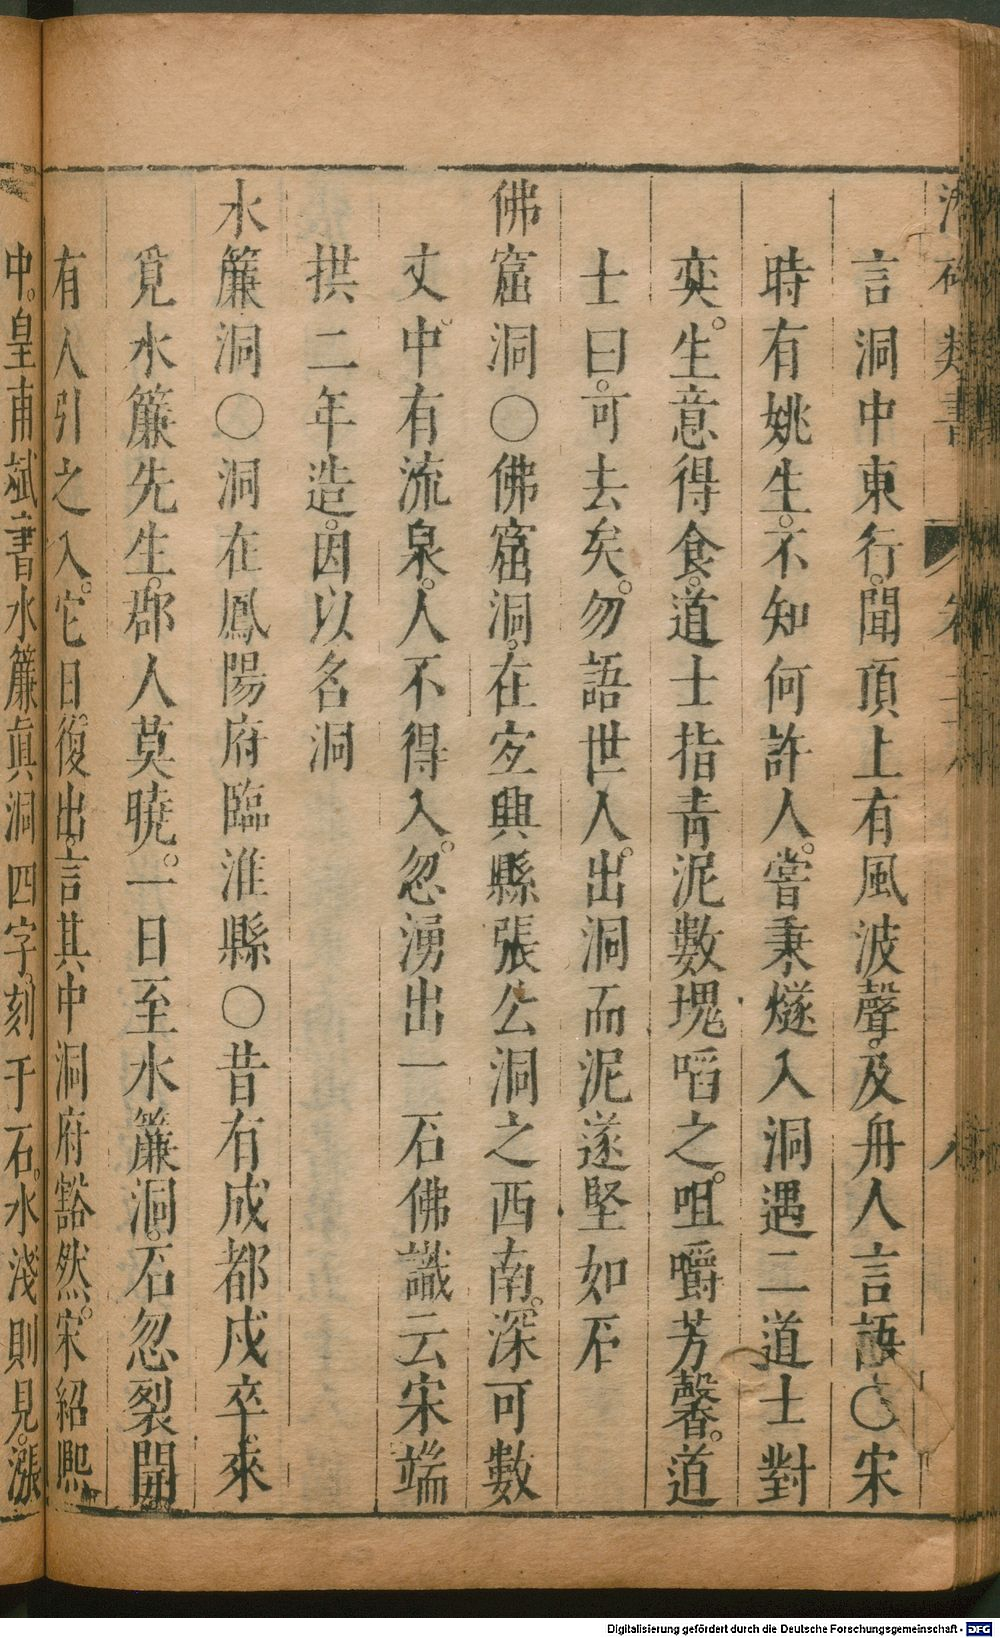 言洞中東行。聞頂上有風波聲。及舟人言語〇宋
時有姚生。不知何許人。嘗秉燧入洞遇二道士對
奕。生意得食。道士指青泥數塊啗之。咀嚼芳馨。道
士曰。可去矣。勿語世人。出洞而泥遂堅如石
佛窟洞〇佛窟洞。在宐興縣張公洞之西南。深可數
丈。中有流泉。人不得入。忽湧出一石佛識云宋端
拱二年造。因以名洞
水簾洞〇洞在鳳陽府臨淮縣〇昔有成都戍卒。來
覓水簾先生。郡人莫曉。一日至水簾洞。石忽裂開。
有人引之入。它日。復出。言其中洞府豁然。宋紹熈
中。皇甫斌書水簾眞洞四字。刻于石。水淺則見。漲
Digitalisierung gefördert durch die Deutsche Forschungsgemeinschaft - DFG